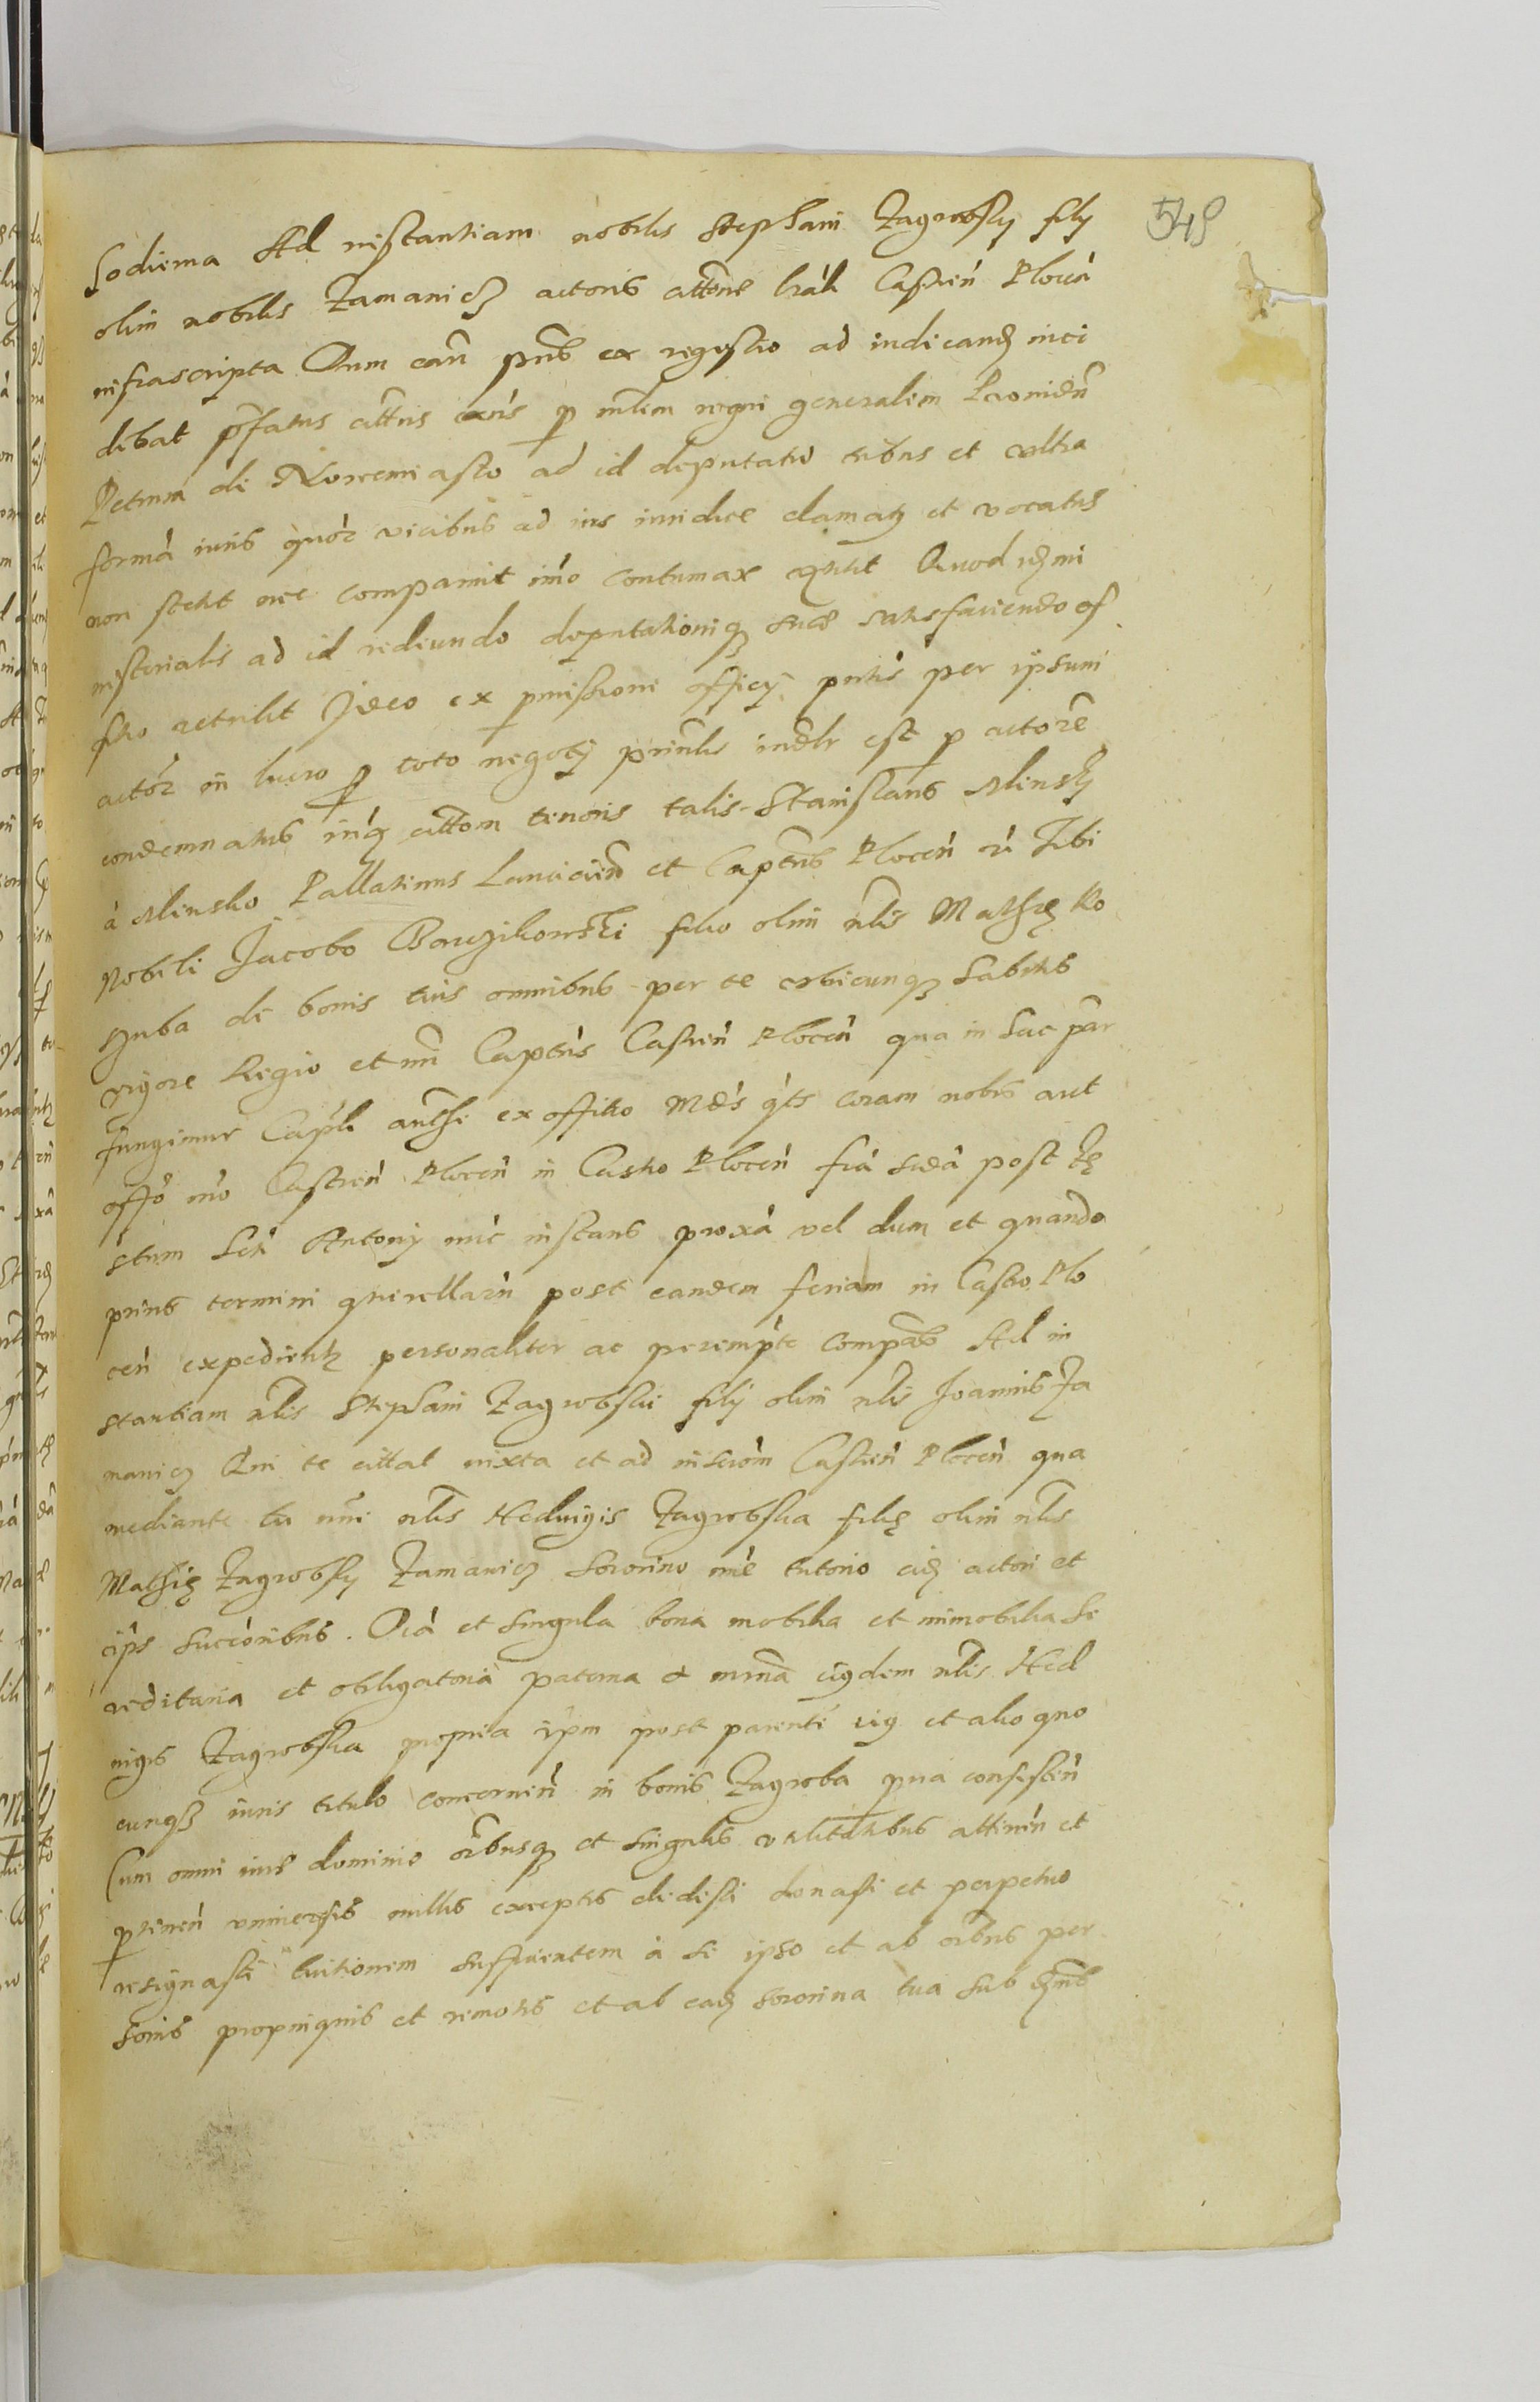 549
hodierna Ad instantiam nobilis Stephani Zagrobsky filÿ
olim nobilis Zamanicz actoris cittõne lrali Castren Plocen
infrascripta Dum cau pñs ex regestro ad iudicandũ inci
debat pfatus cittus exns p mlem regni generalem Providũ
Petrum de Nowemiasto ad id deputatũ tribus et ultra
forma iuris quor vicibus ad ius iuridice clamatus et vocatus
non stetit nec comparuit imo contumax extitit Quod idem mi
nisterialis ad id rediundo deputationiq suæ satisfaciendo of
ficio retulit Ideo ex pmissione officÿ pntis per ipsum
actor in lucro p toto negotÿ prinlis indlr est p actorẽ
condemnatus iuq cittom tenoris talis Stanislaus Minsky
à Minsko Pallatinus Lanciciẽn et Capteus Plocen ei Tibi
Nobili Jacobo filio olim nlis Mathię Ko
szuba de bonis tuis omnibus per te ubicunq habitis
vigore Regio et nri Captus Castren Plocen qua in hac par
fungimur Capli auths ex officio Mdes qts coram nobis aut
offo nro Castren Plocen in Castro Plocen fria scda post fę
stum Scti Antonÿ nuc instans proxa vel dum et quando
prius termini querellaru post eandem feriam in Castro Plo
cen expedientr personaliter ac perempte compas Ad in
stantiam nlis Stephani Zagrobski filÿ olim nlis Joannis Za
manicz Qui te cittat iuxta et ad inscrom Castren Plocen qua
mediante tu nri nlis Hedwigis Zagrobska filię olim nlis
Mathię Zagrobsky Zamanicz sororino nne tutorio eid actori et
eips succoribus. Oia et singula bona mobilia et immobilia he
reditaria et obligatoria paterna et mrna eiusdem nlis Hed
wigis Zagrobska propria ipm post parente eig et alio quo
cunq iuris titulo concernen in bonis Zagroba pua consisten
Cum omni iure dominio oibusq et singulis utilitatibus attinen et
ptinen universis nullis exceptis dedisti donasti et perpetuo
resignasti tuitionem sufficientem à se ipso et ab oibus per
sonis propinquis et remotis et ab ead sororina tua sub dnis